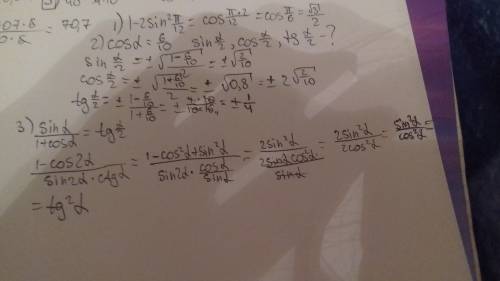 07·8 / 0·8 = 70,7
1) 1-2sin² π/12 = cos π·2/12 = cos π/6 = √3/2
2) cosα = 6/10 sin α/2, cos α/2, tg α/2 - ?
sin α/2 = ± √(1-6/10)/2 = ± √2/10
cos α/2 = ± √(1+6/10)/2 = ± √0,8 = ± 2√2/10
tg α/2 = ± (1-6/10)/(1+6/10) = ± 4·10/10·16 = ± 1/4
3) sinα/(1+cosα) = tg α/2
(1-cos2α)/(sin2α·ctgα) = (1-cos²α+sin²α)/(sin2α·cosα/sinα) = 2sin²α/(2sinαcosα·cosα/sinα) = 2sin²α/2cos²α = sin²α/cos²α =
= tg²α